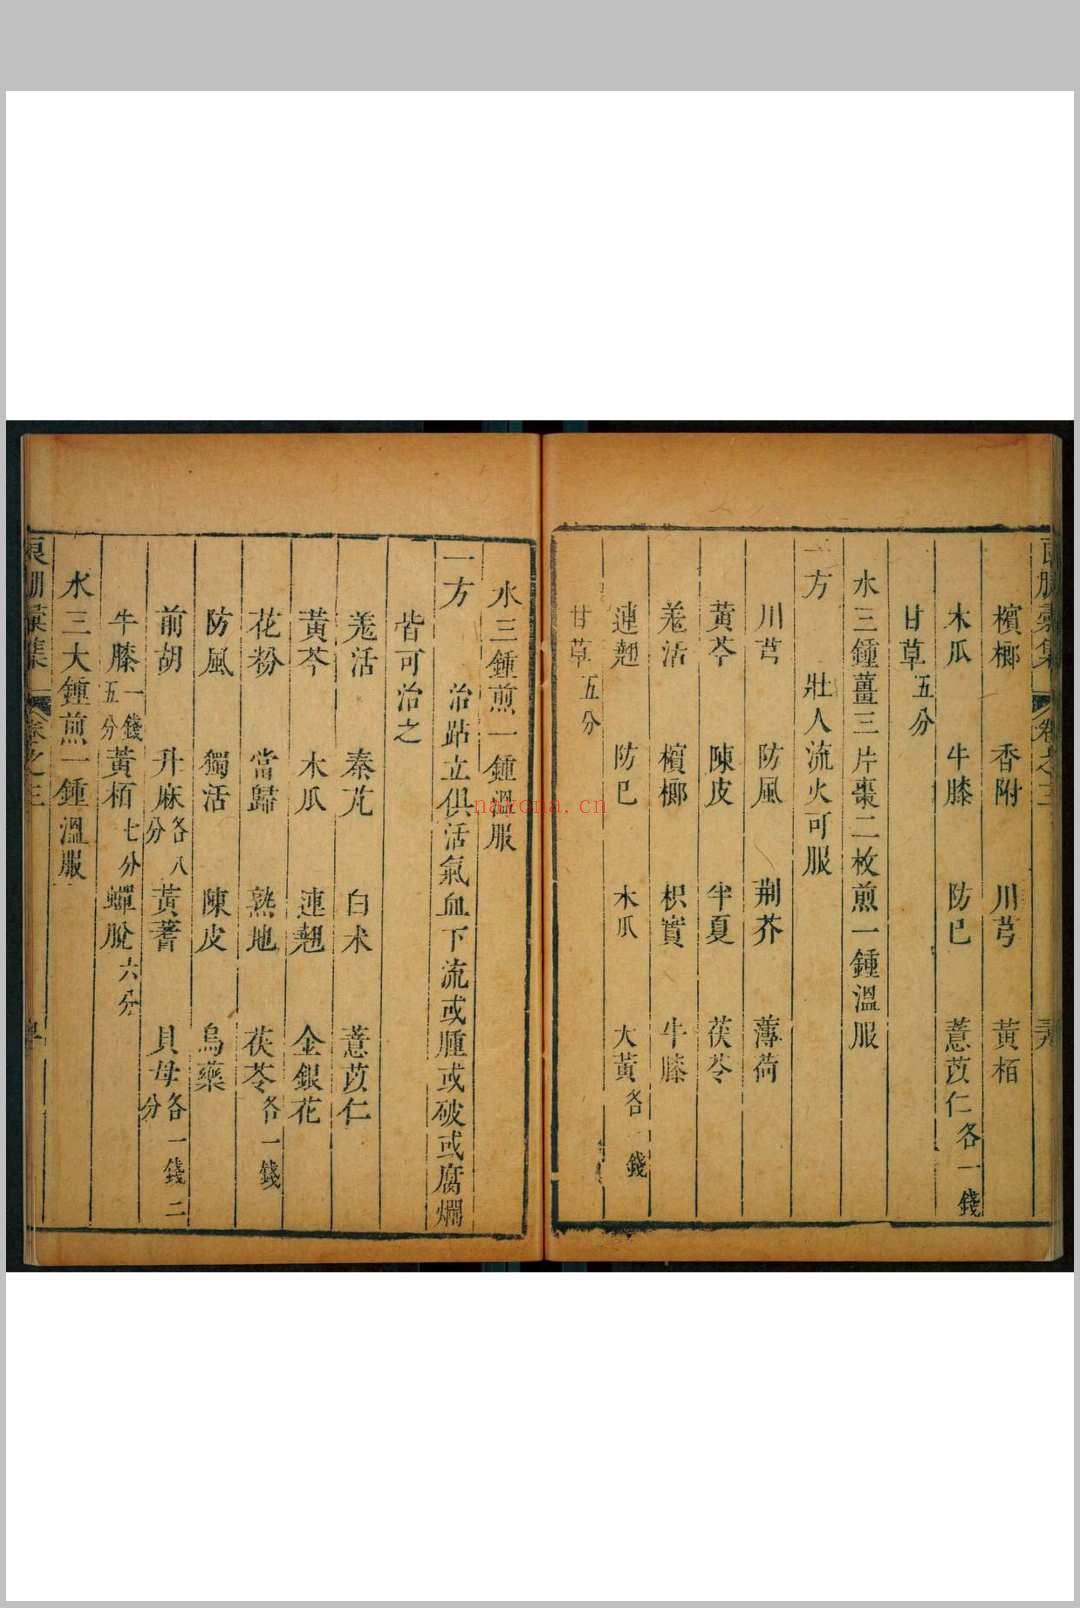 檳榔 香附 川芎 黃栢
木瓜 牛膝 防已 薏苡仁各一錢
甘草五分
水三鍾薑三片棗二枚煎一鍾溫服
一方 壯人流火可服
川芎 防風 荆芥 薄荷
黃芩 陳皮 半夏 茯苓
羗活 檳榔 枳實 牛膝
連翹 防已 木瓜 大黃各一錢
甘草五分
水三鍾煎一鍾溫服
一方 治跕立俱活氣血下流或腫或破或腐爛
皆可治之
羗活 秦艽 白朮 薏苡仁
黃芩 木瓜 連翹 金銀花
花粉 當歸 熟地 茯苓各一錢
防風 獨活 陳皮 烏藥
前胡 升麻各八分 黃蓍 貝母各一錢二分
牛膝一錢五分 黃栢七分 蟬脫六分
水三大鍾煎一鍾溫服
集 卷之三
nazona.cn